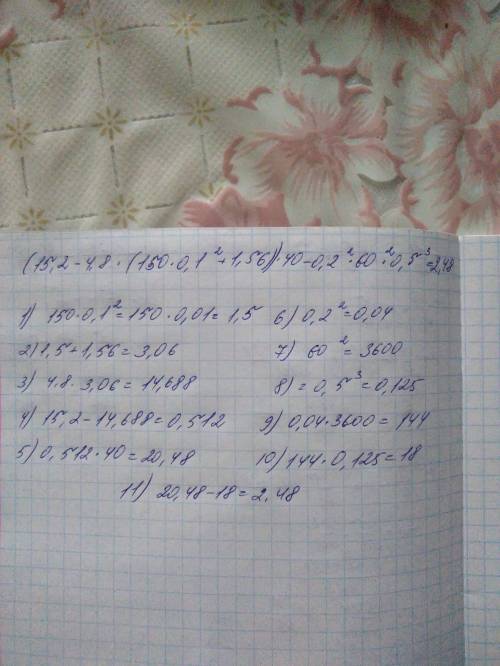 (15,2-4,8·(150·0,1²+1,56))·40-0,2²·60²·0,5³=2,48
1) 150·0,1²=150·0,01=1,5
2) 1,5+1,56=3,06
3) 4.8·3,06=14,688
4) 15,2-14,688=0,512
5) 0,512·40=20,48
6) 0,2²=0,04
7) 60²=3600
8) = 0,5³=0,125
9) 0,04·3600=144
10) 144·0,125=18
11) 20,48-18=2,48